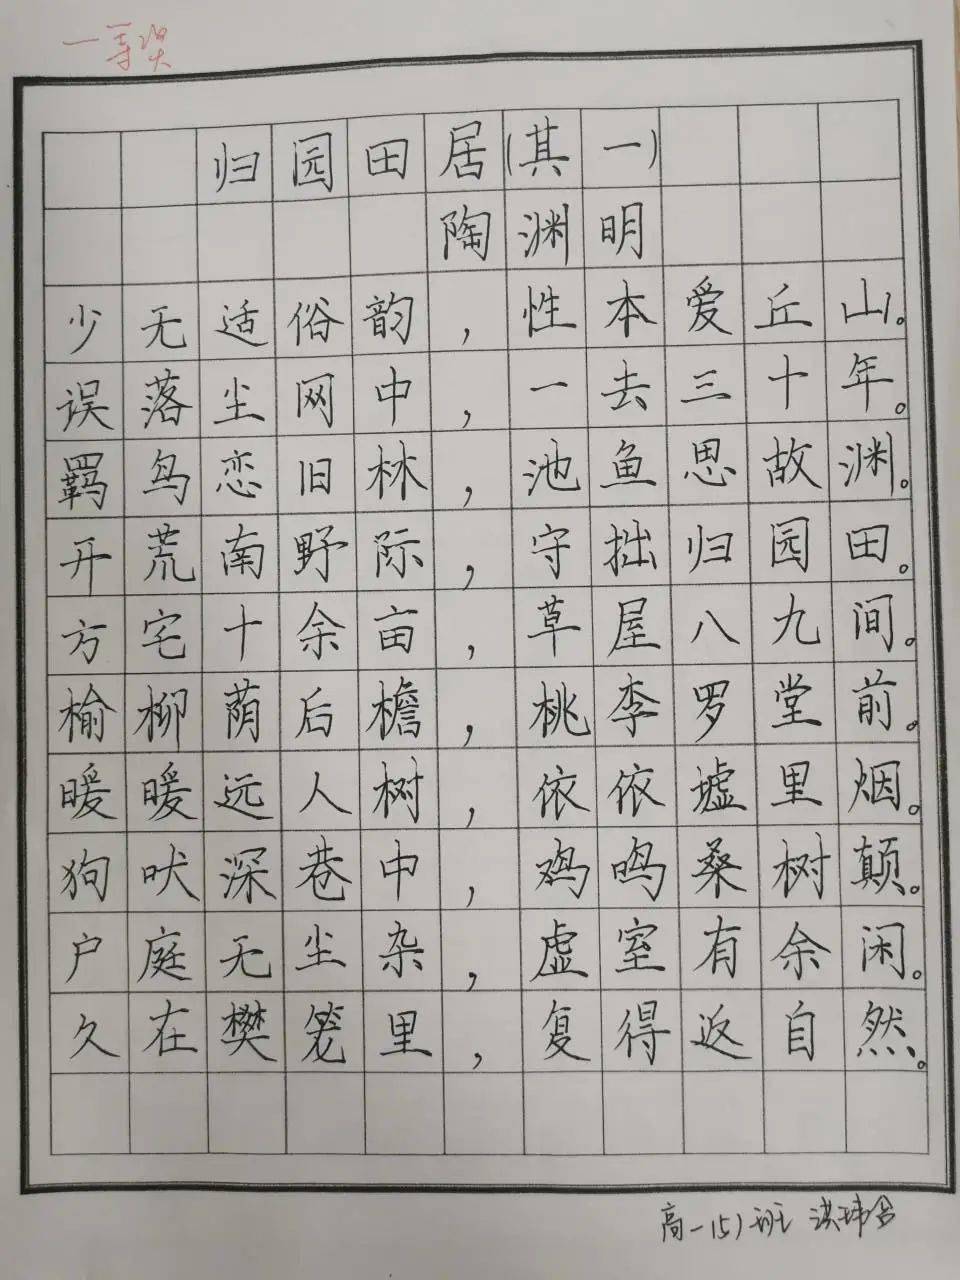 一等奖
归园田居(其一)
陶渊明
少无适俗韵,性本爱丘山。
误落尘网中,一去三十年。
羁鸟恋旧林,池鱼思故渊。
开荒南野际,守拙归园田。
方宅十余亩,草屋八九间。
榆柳荫后檐,桃李罗堂前。
暖暖远人树,依依墟里烟。
狗吠深巷中,鸡鸣桑树颠。
户庭无尘杂,虚室有余闲。
久在樊笼里,复得返自然。
高一(5)班 洪玮